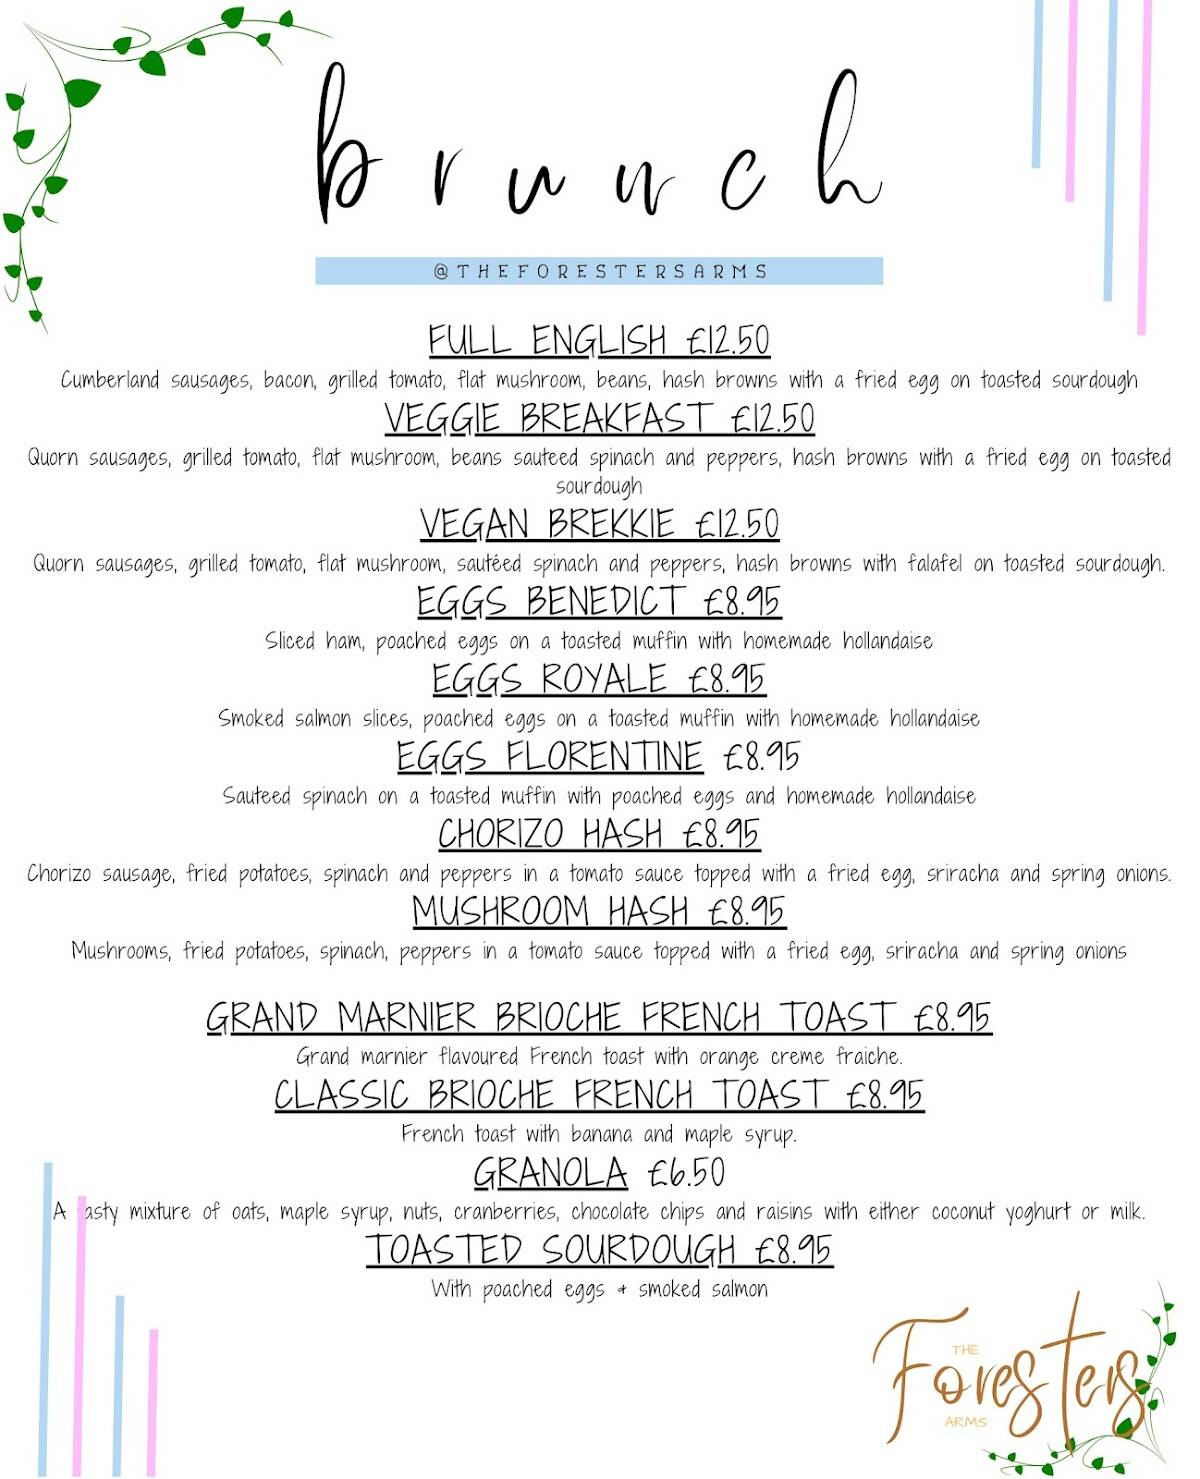 brunch
@THEFORESTERSARMS
FULL ENGLISH £12.50
Cumberland sausages, bacon, grilled tomato, flat mushroom, beans, hash browns with a fried egg on toasted sourdough
VEGGIE BREAKFAST £12.50
Quorn sausages, grilled tomato, flat mushroom, beans sauteed spinach and peppers, hash browns with a fried egg on toasted
sourdough
VEGAN BREKKIE £12.50
Quorn sausages, grilled tomato, flat mushroom, sautéed spinach and peppers, hash browns with falafel on toasted sourdough.
EGGS BENEDICT £8.95
Sliced ham, poached eggs on a toasted muffin with homemade hollandaise
EGGS ROYALE £8.95
Smoked salmon slices, poached eggs on a toasted muffin with homemade hollandaise
EGGS FLORENTINE £8.95
Sauteed spinach on a toasted muffin with poached eggs and homemade hollandaise
CHORIZO HASH £8.95
Chorizo sausage, fried potatoes, spinach and peppers in a tomato sauce topped with a fried egg, sriracha and spring onions.
MUSHROOM HASH £8.95
Mushrooms, fried potatoes, spinach, peppers in a tomato sauce topped with a fried egg, sriracha and spring onions
GRAND MARNIER BRIOCHE FRENCH TOAST £8.95
Grand marnier flavoured French toast with orange creme fraiche.
CLASSIC BRIOCHE FRENCH TOAST £8.95
French toast with banana and maple syrup.
GRANOLA £6.50
A tasty mixture of oats, maple syrup, nuts, cranberries, chocolate chips and raisins with either coconut yoghurt or milk.
TOASTED SOURDOUGH £8.95
With poached eggs + smoked salmon
THE
Foresters
ARMS